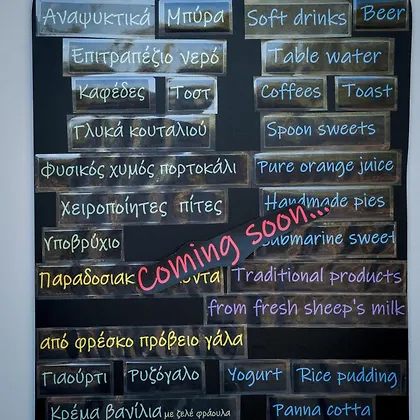 Αναψυκτικά Μπύρα Soft drinks Beer
Επιτραπέζιο νερό Table water
Καφέδες Τοστ Coffees Toast
Γλυκά κουταλιού Spoon sweets
Φυσικός χυμός πορτοκάλι Pure orange juice
Χειροποίητες πίτες Handmade pies
Coming soon...
Υποβρύχιο sweet
Traditional products
from fresh sheep's milk
από φρέσκο πρόβειο γάλα
Γιαούρτι Ρυζόγαλο Yogurt Rice pudding
Κρέμα βανίλια με ζελέ φράουλα Panna cotta